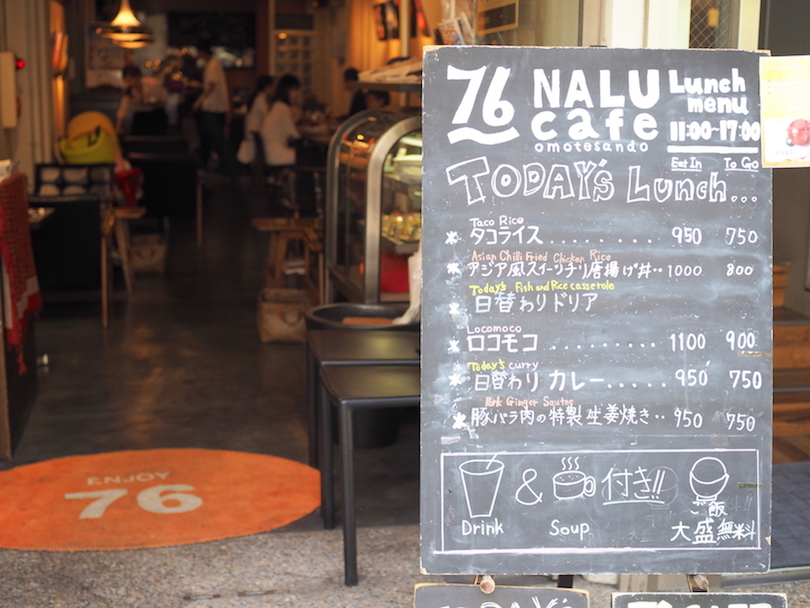 76 NALU cafe
omotesando
Lunch menu
11:00-17:00
Eat In To Go
TODAY's Lunch...
Taco Rice
タコライス.......... 950 750
Asian Chilli Fried Chicken Rice
アジア風スイーツチリ唐揚げ丼.. 1000 800
Today's Fish and Rice casserole
日替わりドリア
Locomoco
ロコモコ.......... 1100 900
Today's curry
日替わりカレー...... 950 750
Pork Ginger Saute
豚バラ肉の特製生姜焼き.. 950 750
Drink & Soup 付き!!
ご飯
大盛無料
ENJOY
76
TODAY's